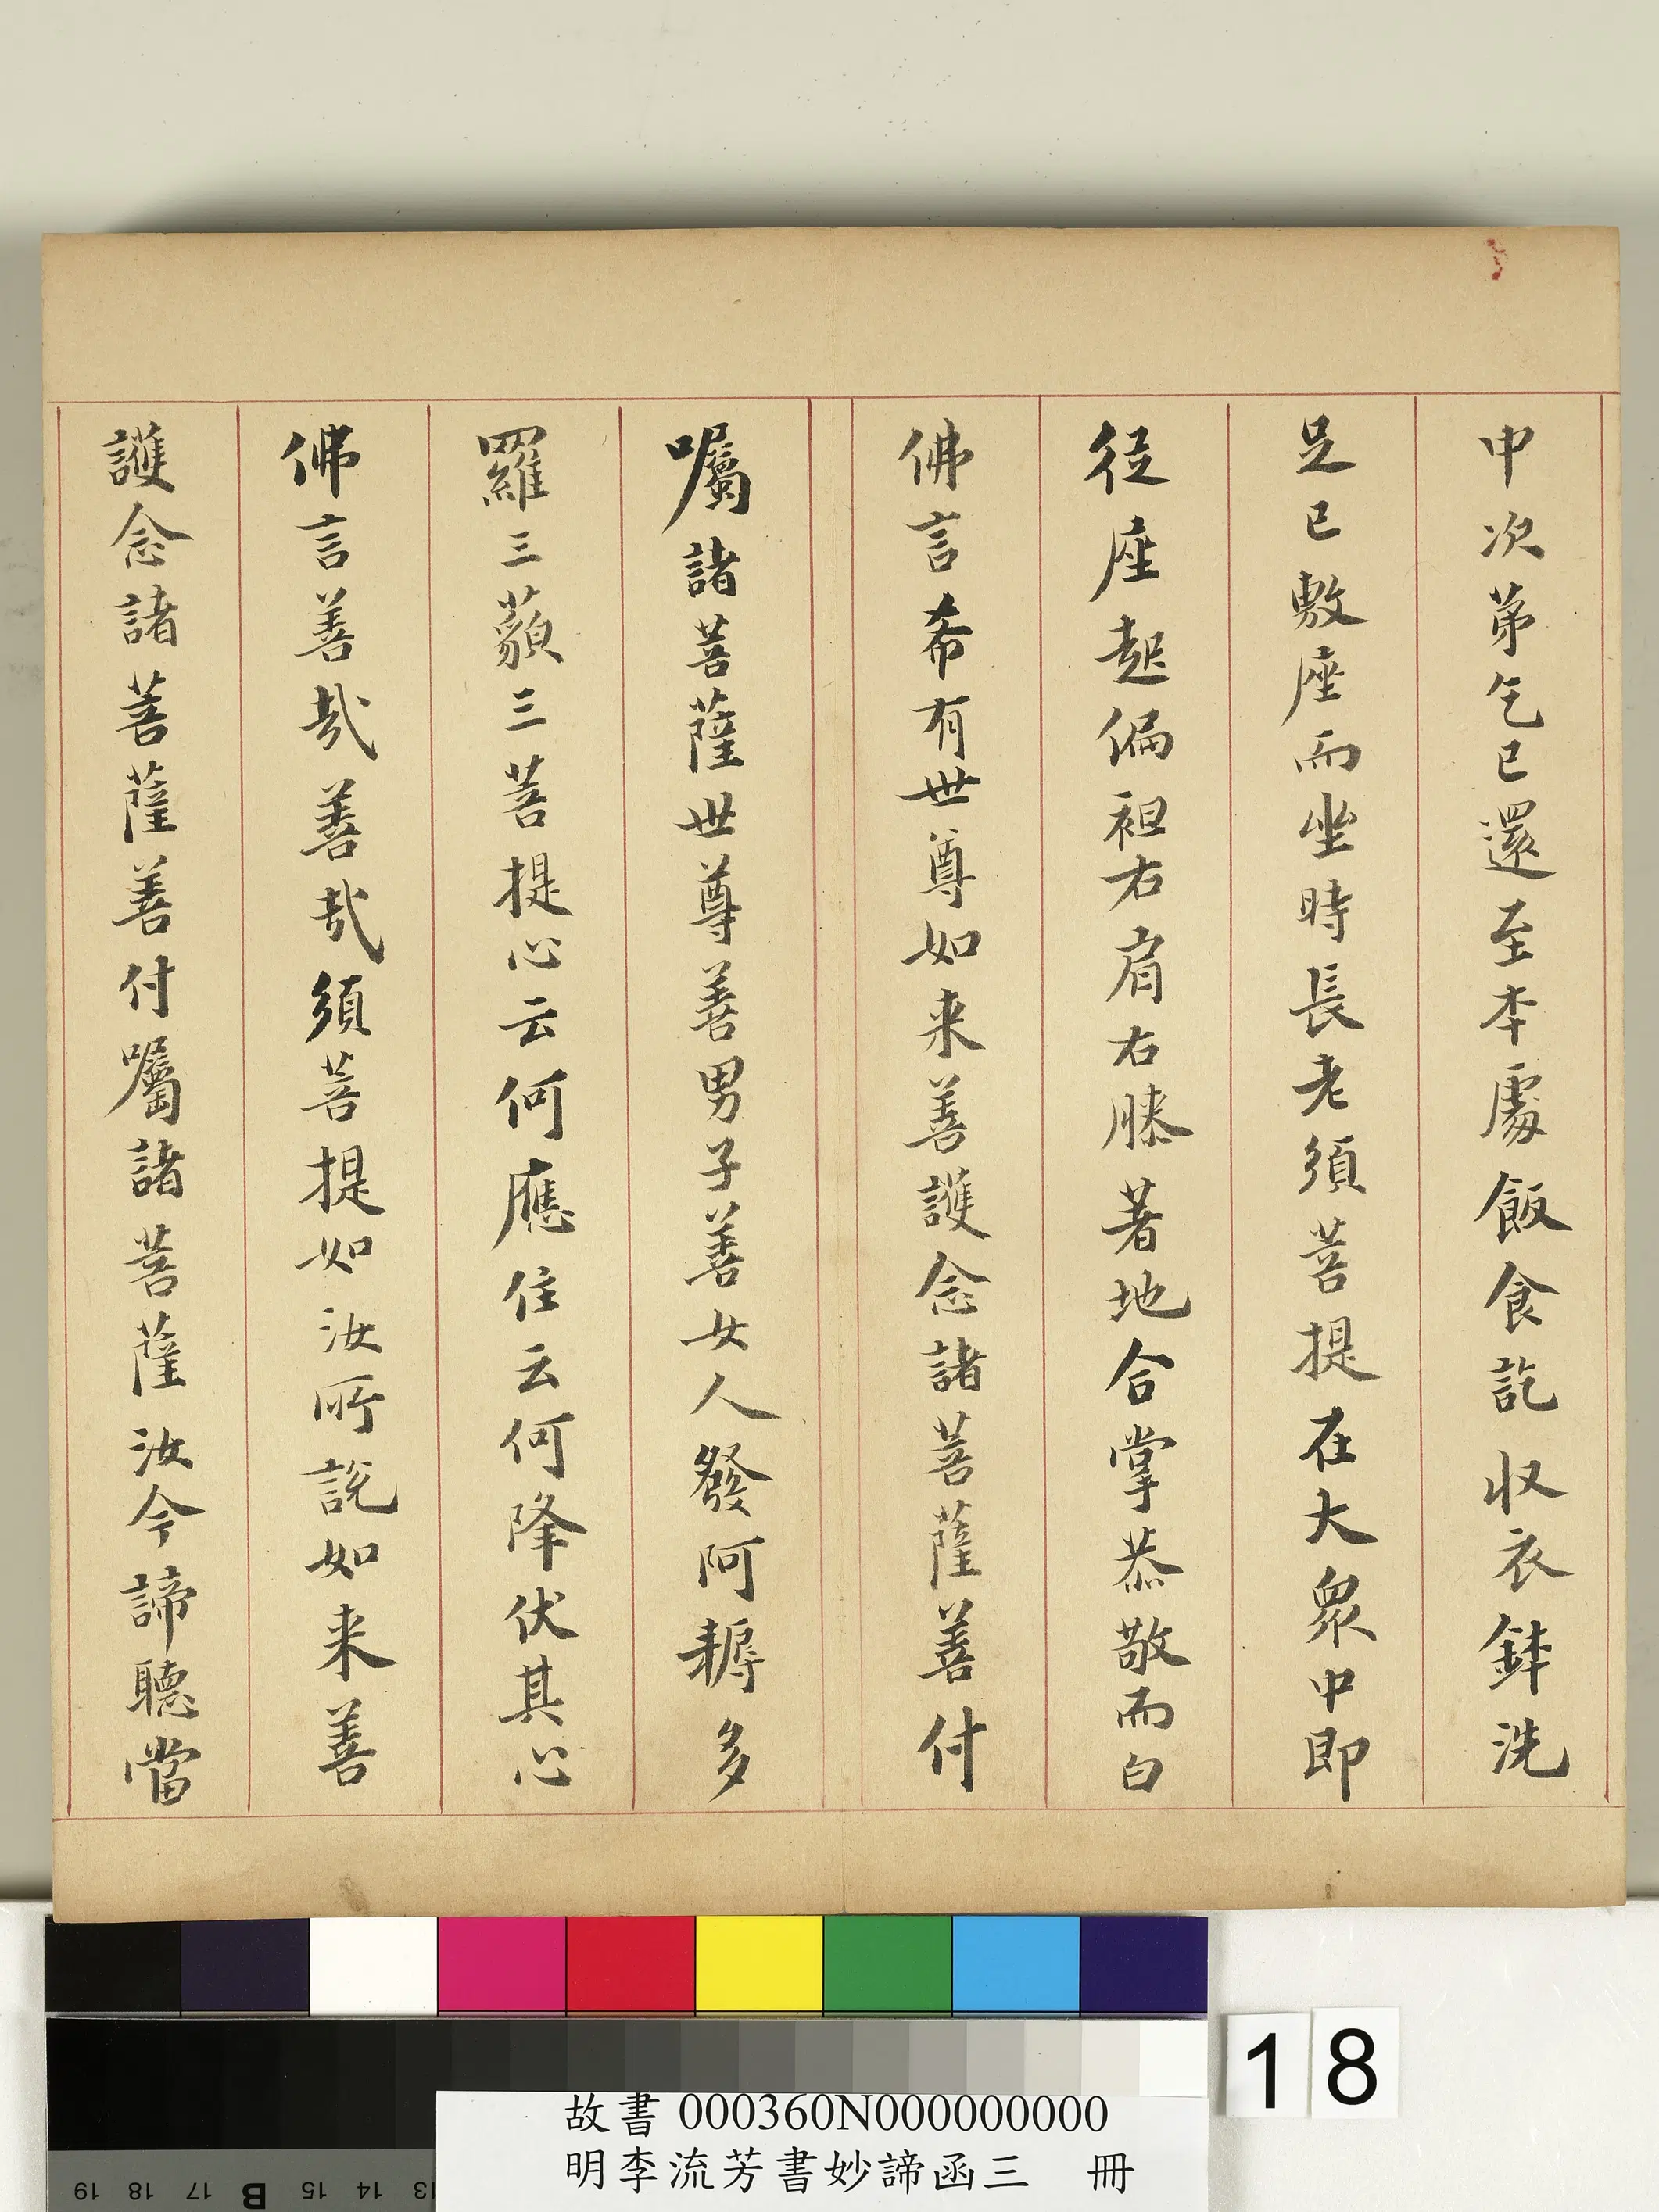 中次苐乞已還至本處飯食訖収衣鉢洗
足已敷座而坐時長老須菩提在大眾中即
從座起偏袒右肩右膝著地合掌恭敬而白
佛言希有世尊如来善護念諸菩薩善付
囑諸菩薩世尊善男子善女人發阿耨多
羅三藐三菩提心云何應住云何降伏其心
佛言善哉善哉須菩提如汝所說如来善
護念諸菩薩善付囑諸菩薩汝今諦聽當
18
故書 000360N000000000
明李流芳書妙諦函三 冊
19 18 17 B 15 14 13